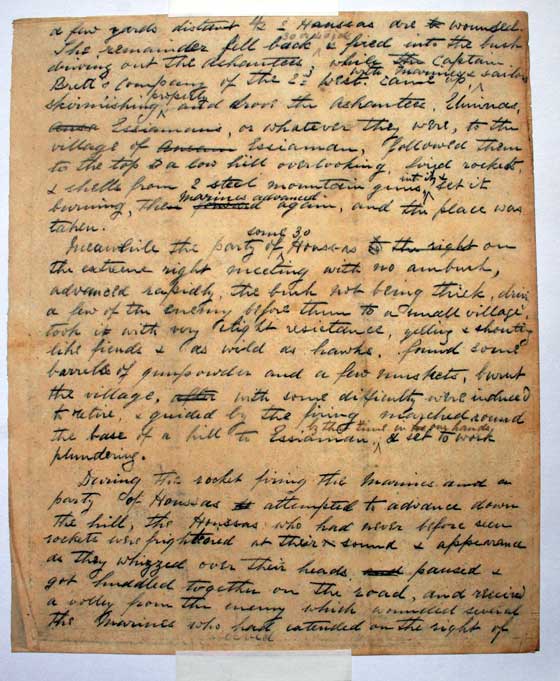 a few yards distant & 2 Houssas are wounded.
30 or so of
The remainder fell back & fired into the bush
driving out the Ashantees, while the Captain
with Marines & sailors
Brett's company of the 2nd West came up
properly
skirmishing and drove the ashantees, Elminas,
Essiamans, or whatever they were, to the
village of Essiaman, followed them
to the top of a low hill overlooking, fired rockets,
into it &
& shells from 2 steel mountain guns, set it
Marines advanced
burning, then again, and the place was
taken.
some 30
Meanwhile the party of Houssas to the right on
the extreme right meeting with no ambush,
advanced rapidly, the bush not being thick, drove
a few of the enemy before them to a small village,
took it with very slight resistance, yelling & shouting
like fiends & as wild as hawks. found some
barrels of gunpowder and a few muskets, burnt
the village, after with some difficulty were induced
to retire, & guided by the firing marched round
by this time in our hands,
the base of a hill to Essiaman, & set to work
plundering.
During the rocket firing the Marines and a
party of Houssas attempted to advance down
the hill, the Houssas who had never before seen
rockets were frightened at their sound & appearance
as they whizzed over their heads, and paused &
got huddled together on the road, and received
a volley from the enemy which wounded several
the Marines who had extended on the right of